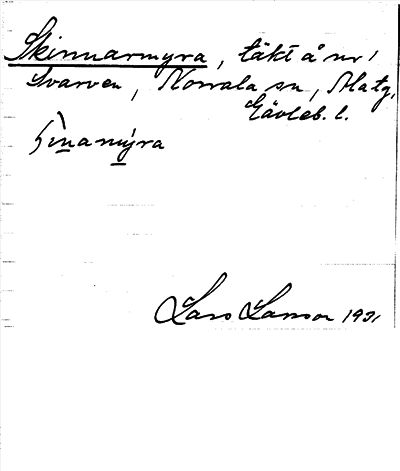 Skinnarmyra, täkt å nr 1
Svarven, Norrala sn,
Gävleb. l.
Lars Larsson 1931